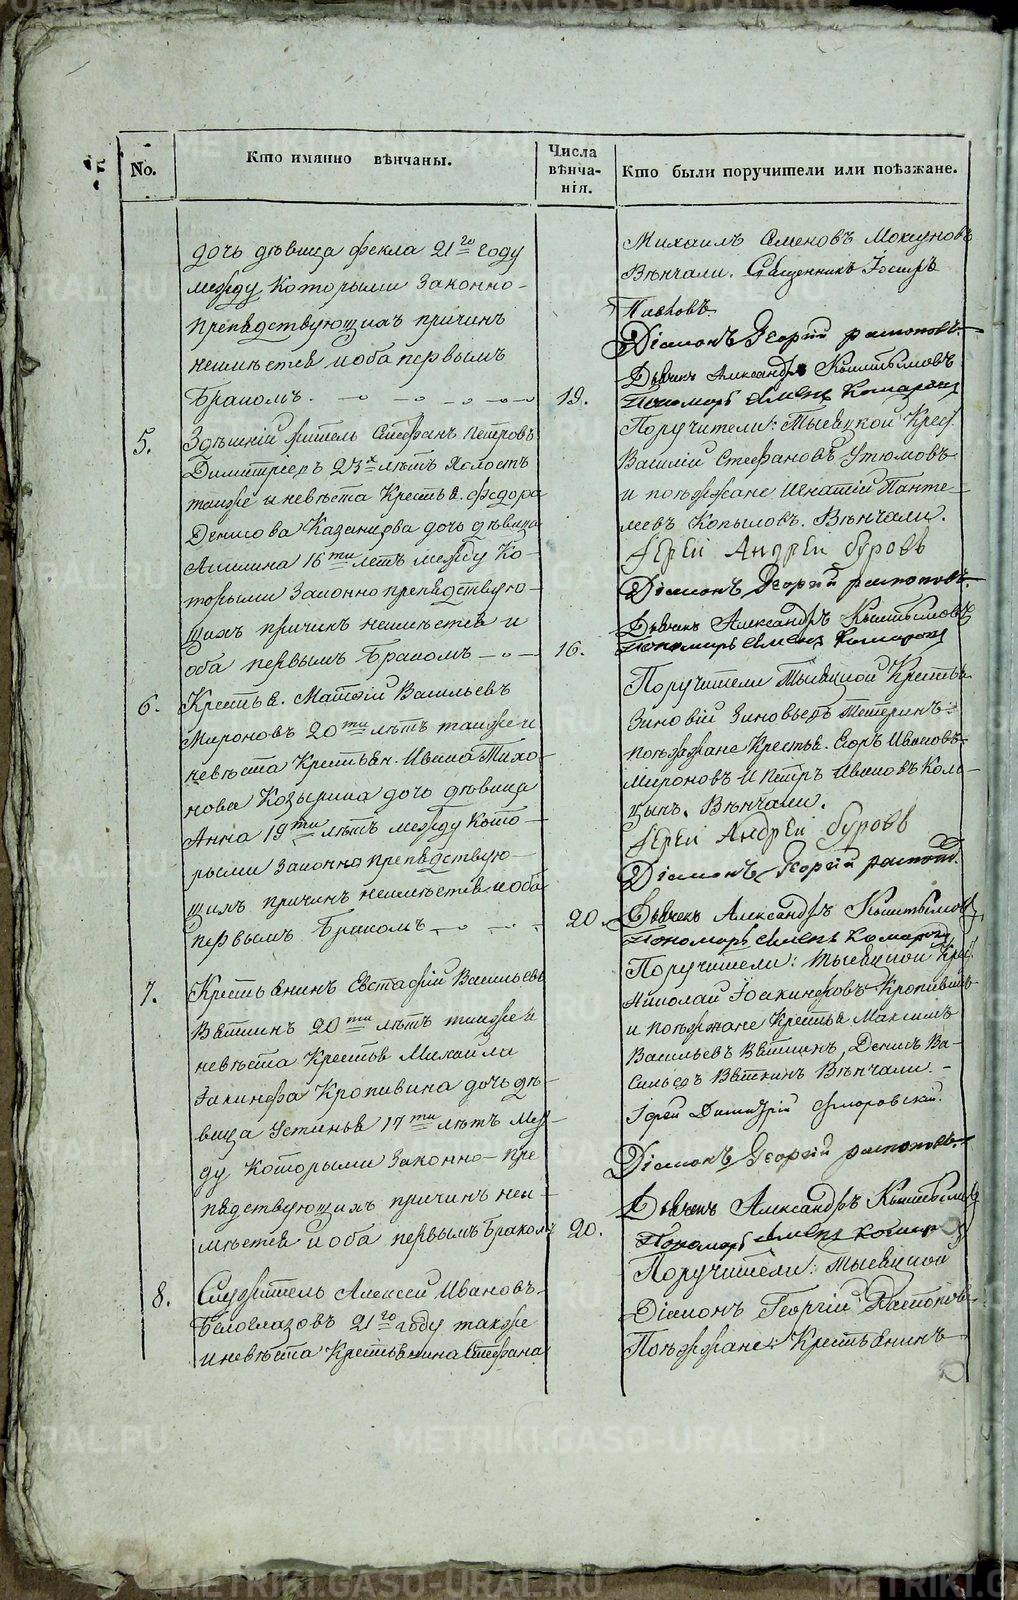 No.
Кто имянно вѣнчаны.
Числа
вѣнча-
нія.
Кто были поручители или поѣзжане.
дочь дѣвица Фекла 21го году
между которыми законно-
препядствующихъ причинъ
неимѣется иоба первымъ
бракомъ.
19.
Михаилъ Семеновъ
Вѣнчали. Священникъ Іосифъ
Діаконъ Георгій
Дьячекъ Александръ
Пономарь
5.
Здѣшній житель Стефанъ Петровъ
23х лѣтъ холостъ
также и невѣста Крестья. Федора
Денисова Казанцова дочь дѣвица
Акилина 16ти летъ между ко-
торыми законно препядствую-
щихъ причинъ неимѣется и
оба первымъ бракомъ
16.
Поручители:
Василій Стефановъ Утюмовъ
и поѣзжане Игнатій Панте-
леевъ Копыловъ. Вѣнчали.
Іерей Андрей Буровъ
Діаконъ Георгій
Дьячекъ Александръ
Пономарь
6.
Крестья. Матѳій Васильевъ
Мироновъ 20ти лѣтъ также и
невѣста Крестьян. Ивана Тихо-
нова Козырина дочь дѣвица
Анна 19ти лѣтъ между кото-
рыми законно препядствую-
щихъ причинъ неимѣется иоба
первымъ бракомъ
20.
Поручители
Зиновій Зиновьевъ Тетеринъ
поѣзжане Крестья. Егоръ Ивановъ
Мироновъ и Петръ Ивановъ Коль-
цынъ. Вѣнчали.
Іерей Андрей Буровъ
Діаконъ Георгій
Дьячекъ Александръ
Пономарь
7.
Крестьянинъ Евстафій Васильевъ
Вяткинъ 20ти лѣтъ также и
невѣста Крестья Михайла
Іакинфа Кропивина дочь дѣ-
вица Устинья 17ти лѣтъ меж-
ду которыми законно-пре
пядствующихъ причинъ неи-
мѣется иоба первымъ бракомъ
20.
Поручители:
Николай Іоакинфовъ Кропивинъ
и поѣзжане Крестья Максимъ
Васильевъ Вяткинъ, Денисъ Ва-
сильевъ Вяткинъ Вѣнчали.
Іерей Димитрій Флоровскій.
Діаконъ Георгій
Дьячекъ Александръ
Пономарь
8.
Служитель Алексей Ивановъ
Белоглазовъ 21го году также
и невѣста Крестьянина Стефана
Поручители:
Діаконъ Георгій Распоповъ
Поѣзжане: Крестьянинъ
METRIKI.GASO-URAL.RU